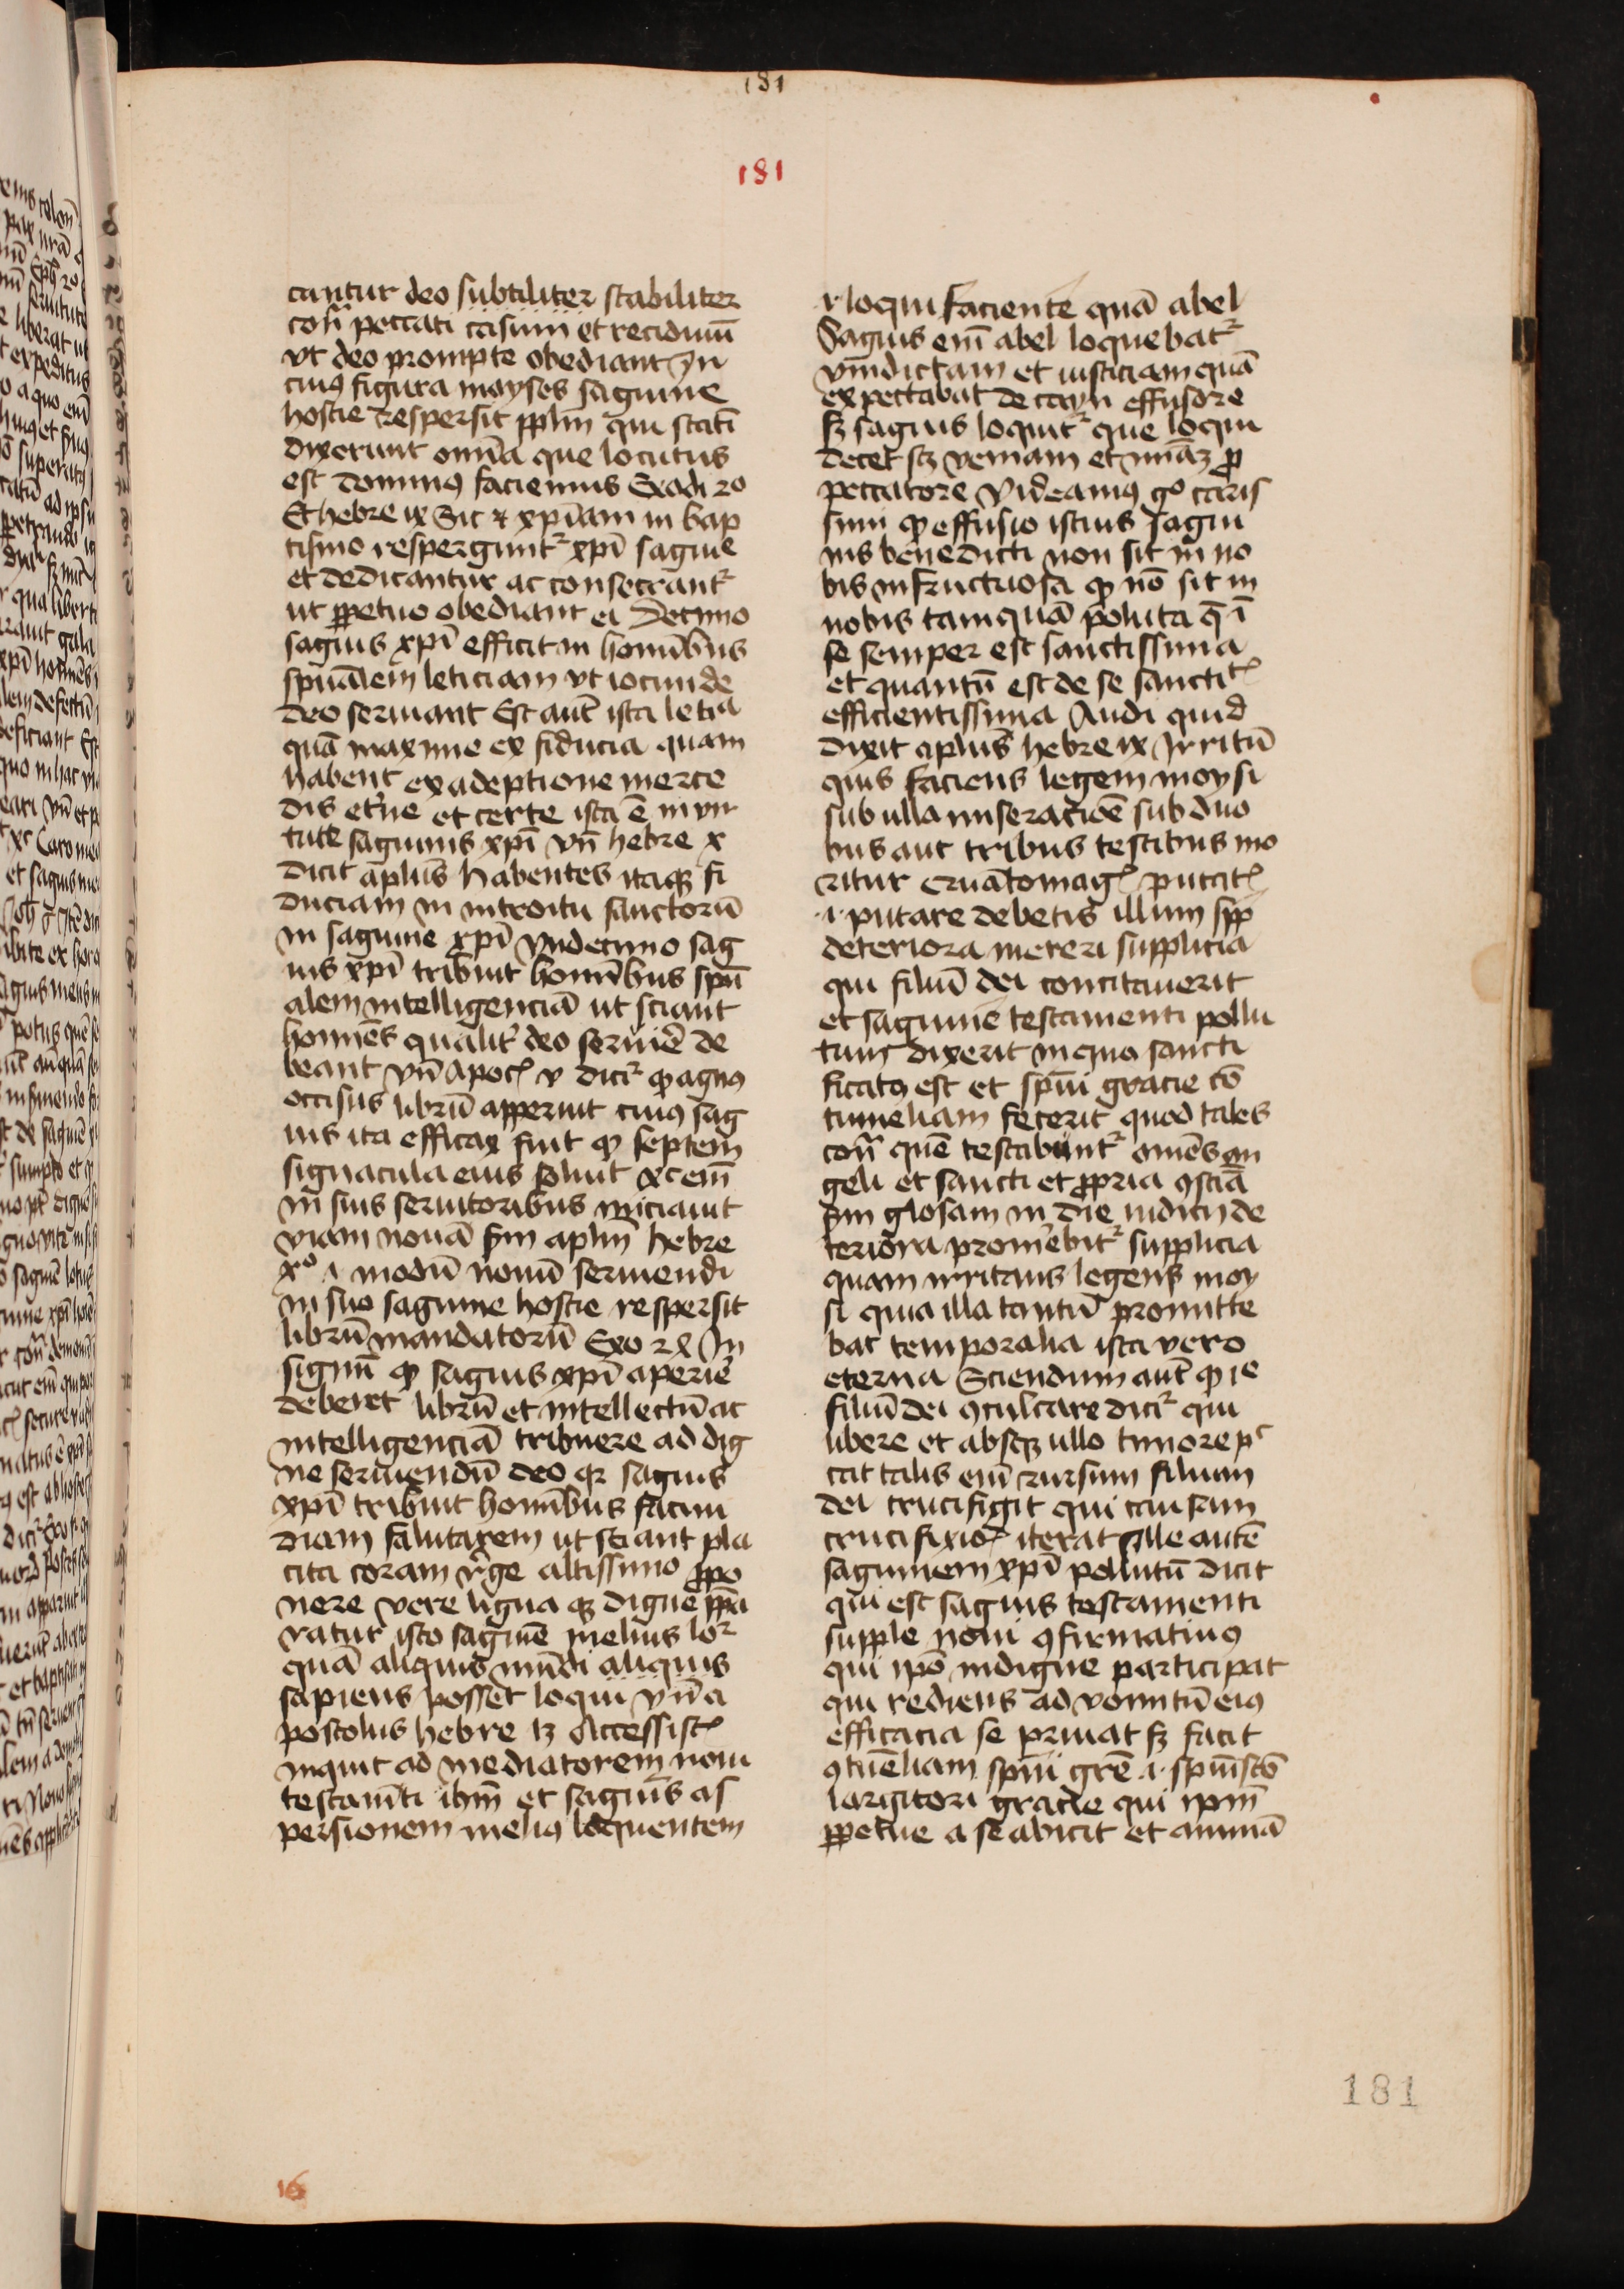 181
181
cantur deo subtiliter stabiliter
cont̄ peccati casum et recidiuū
vt deo prompte obediant In
cuiꝰ figura moyses sagwine
hostie respersit pplm̄ qui stati᷒
dixerunt om̄ia que locutus
est dominꝰ faciemus Exodi 20
Et hebre ix Sic ⁊ xpīani in bap
tismo respergunt᷑ xpī sagwine
et dedicantur ac consecrant᷑
ut ꝑpetuo obediant ei Decimo
sagwis xpī efficit in homībus
spūalem leticiam vt iocunde
deo seruiant Est autē ista leticia
quā maxime ex fiducia quam
habent ex adeptione merce
dis et̓ne et certe ista ē in vir
tute sagwinis xpī vn̄ hebre x
dicit aplūs habentes itaqꝫ fi
duciam in introitu sanctorū
in sagwine xpī Vndecimo sag
wis xpī tribuit homībus spū
alem intelligenciā ut sciant
homīes qualit̓ deo seruire de
beant vn̄ apocꝭ v dicit᷑ ꝙ agnꝰ
occisus librū apperuit cuiꝰ sag
wis ita efficax fuit ꝙ septem
signacula eius soluit xc enī
in suis seruitoribus iniciauit
viam nouā scm̄ aplm̄ hebre
x° .i. modū nouū seruiendi
in suo sagwine hostie respersit
librū mandatorū Exo 24 In
signū ꝙ sagwis xpī aperire
deberet librū et intellectū ac
intelligenciā tribuere ad dig
ne seruiendū deo qꝛ sagwis
xpī tribuit homībus facun
diam salutarem ut sciant pla
cita coram rege altissimo ꝓpo
nere vere ligwa qꝫ digne ppā
ratur isto sagwīe melius loqt᷑
quā aliquis mūdi aliquis
sapiens posset loqui vn̄ a
postolus hebre 12 Accessistꝭ
inquit ad mediatorem noui
testam̄ti ihm̄ et sagwis as
persionem meliꝰ loquentem
⁊ loqui faciente quā abel
Sagwis enī abel loquebat᷑
vindictam et iusticiam quā
expectabat de cayn effusore
sꝫ sagwis loquit᷑ que loqui
decet scꝫ veniam et mīaꝫ ꝓ
peccatore Videamꝰ g° caris
simi ꝙ effusio istius sagwi
nis benedicti non sit in no
bis infructuosa ꝙ nō sit in
nobis tamquā poluta q̄ ī
se semper est sanctissima
et quantū est de se sanctitꝭ
efficientissima Audi quid
dixit aplūs hebre ix Irritū
quis faciens legem moysi
sub ulla miseracioē sub duo
bus aut tribus testibus mo
ritur cruāto magꝭ putatꝭ
.i. putare debetis illum spp
deteriora mereri supplicia
qui filiū dei concitauerit
et sagwine testamenti pollu
tum dixerit in quo sancti
ficatꝰ est et spūi gracie cō
tumeliam fecerit quod tales
cont̄ quē testabunt᷑ omēs an
geli et sancti et ꝓpria ꝯsciā
scm̄ glosam in die iudicii de
teriora prom̓ebit᷑ supplicia
quam irritans legens moy
si quia illa tantū promitte
bat temporalia ista vero
eterna Sciendum autē ꝙ ie
filiū dei ꝯculcare dicit᷑ qui
libere et absqꝫ ullo timore pc
cat talis enī rursum filium
dei crucifigit qui causam
crucifixioꝭ iterat Ille autē
sagwinem xpī pollutū dicit
qui est sagwis testamenti
supple noui ꝯfirmatiuꝰ
qui ip̄o indigne participat
qui rediens ad vomitū eiꝰ
efficacia se priuat sꝫ facit
ꝯtūeliam spūi grē .i. spūi scō
largitori gracie qui ip̄m
ꝑpetue a se abicit et animā
181
16